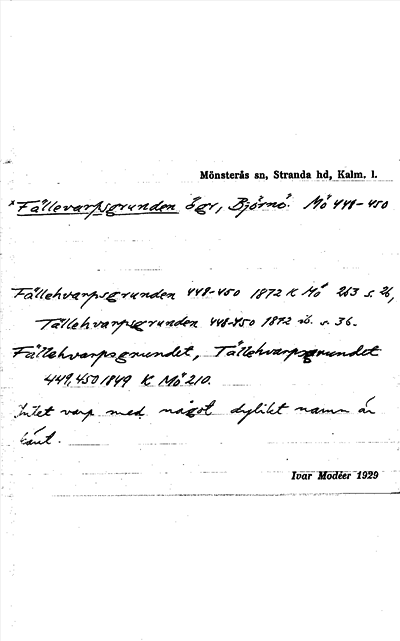 Mönsterås sn, Stranda hd, Kalm. l.
x Fällevarpsgrunden ögr, Björnö. Mö 448-450
Fällehvarpsgrunden 448-450 1872 K Mö 263 s. 26,
Tällehvarpsgrunden 448-450 1872 ib. s. 36.
Fällehvarpsgrundet, Tällehvarpsgrundet
449, 450 1849 K Mö 210.
Intet varp med något dylikt namn är
känt.
Ivar Modéer 1929